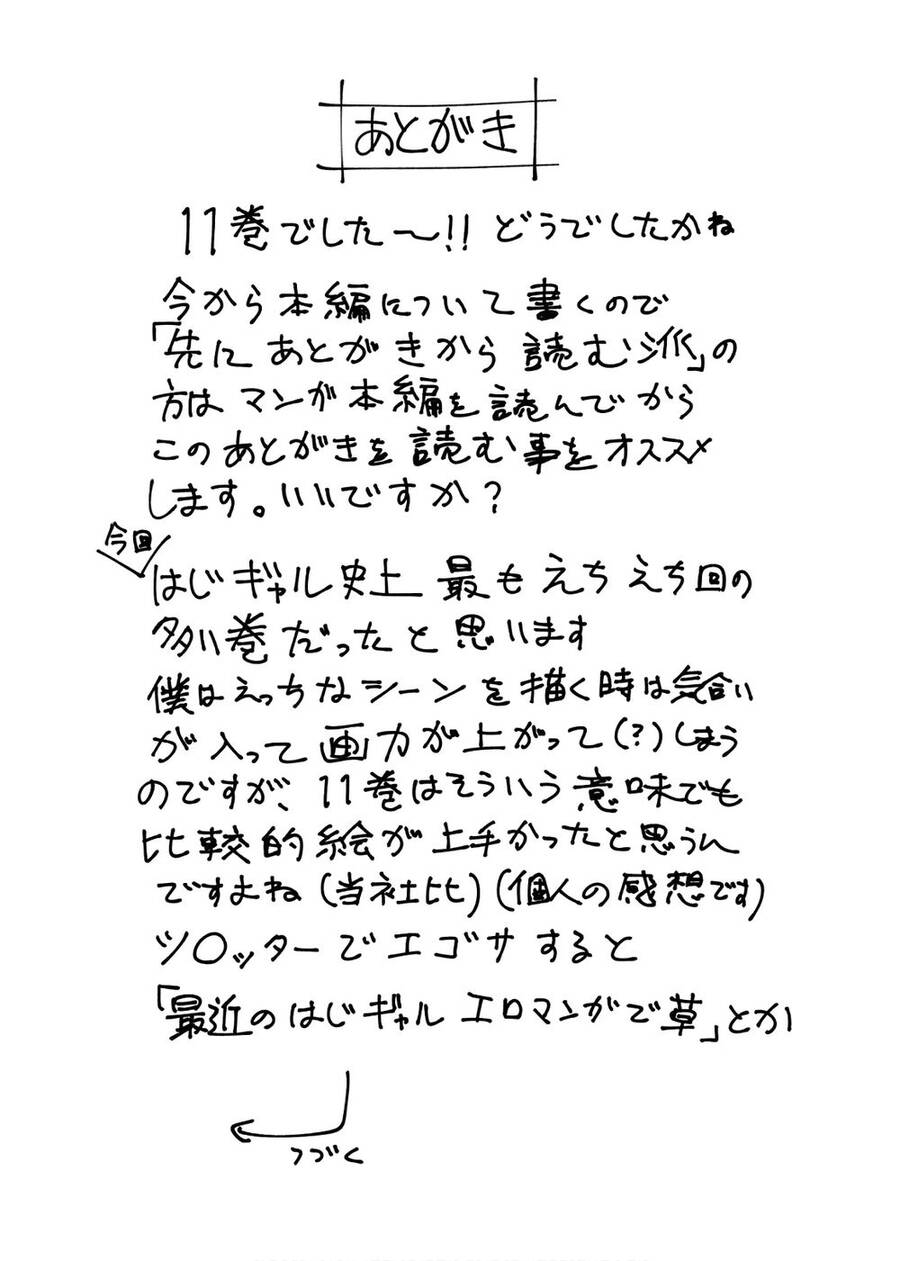 あとがき
11巻でした〜!!どうでしたかね
今から本編について書くので
「先にあとがきから読む派」の
方はマンガ本編を読んでから
このあとがきを読む事をオススメ
します。いいですか？
今回
はじギャル史上 最もえちえち回の
多い巻だったと思います
僕はえっちなシーンを描く時は気合い
が入って画力が上がって(?)しまう
のですが、11巻はそういう意味でも
比較的絵が上手かったと思うん
ですよね(当社比)(個人の感想です)
ツ○ッターでエゴサすると
「最近のはじギャルエロマンガで草」とか
つづく